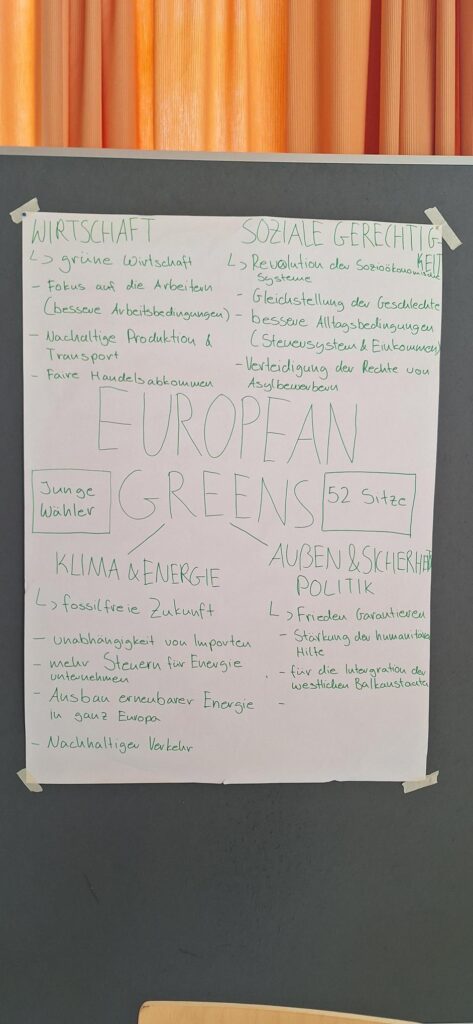 WIRTSCHAFT
↳ grüne Wirtschaft
- Fokus auf die Arbeitern
(bessere Arbeitsbedingungen)
- Nachaltige Produktion &
Transport
- Faire Handelsabkommen
SOZIALE GERECHTIG-
KEIT
↳ Revolution der Sozioökonomische
Systeme
- Gleichstellung der Geschlechte
- bessere Alltagsbedingungen
(Steuersystem & Einkommen)
- Verteidigung der Rechte von
Asylbewerbern
EUROPEAN
GREENS
Junge
Wähler
52 Sitze
KLIMA & ENERGIE
↳ fossilfreie Zukunft
- unabhängigkeit von Importen
- mehr Steuern für Energie
unternehmen
- Ausbau erneubarer Energie
in ganz Europa
- Nachhaltiger Verkehr
AUßEN & SICHERHEIT
POLITIK
↳ Frieden Garantieren
- Stärkung der humanitären
Hilfe
- für die Intergration der
westlichen Balkanstaaten
-